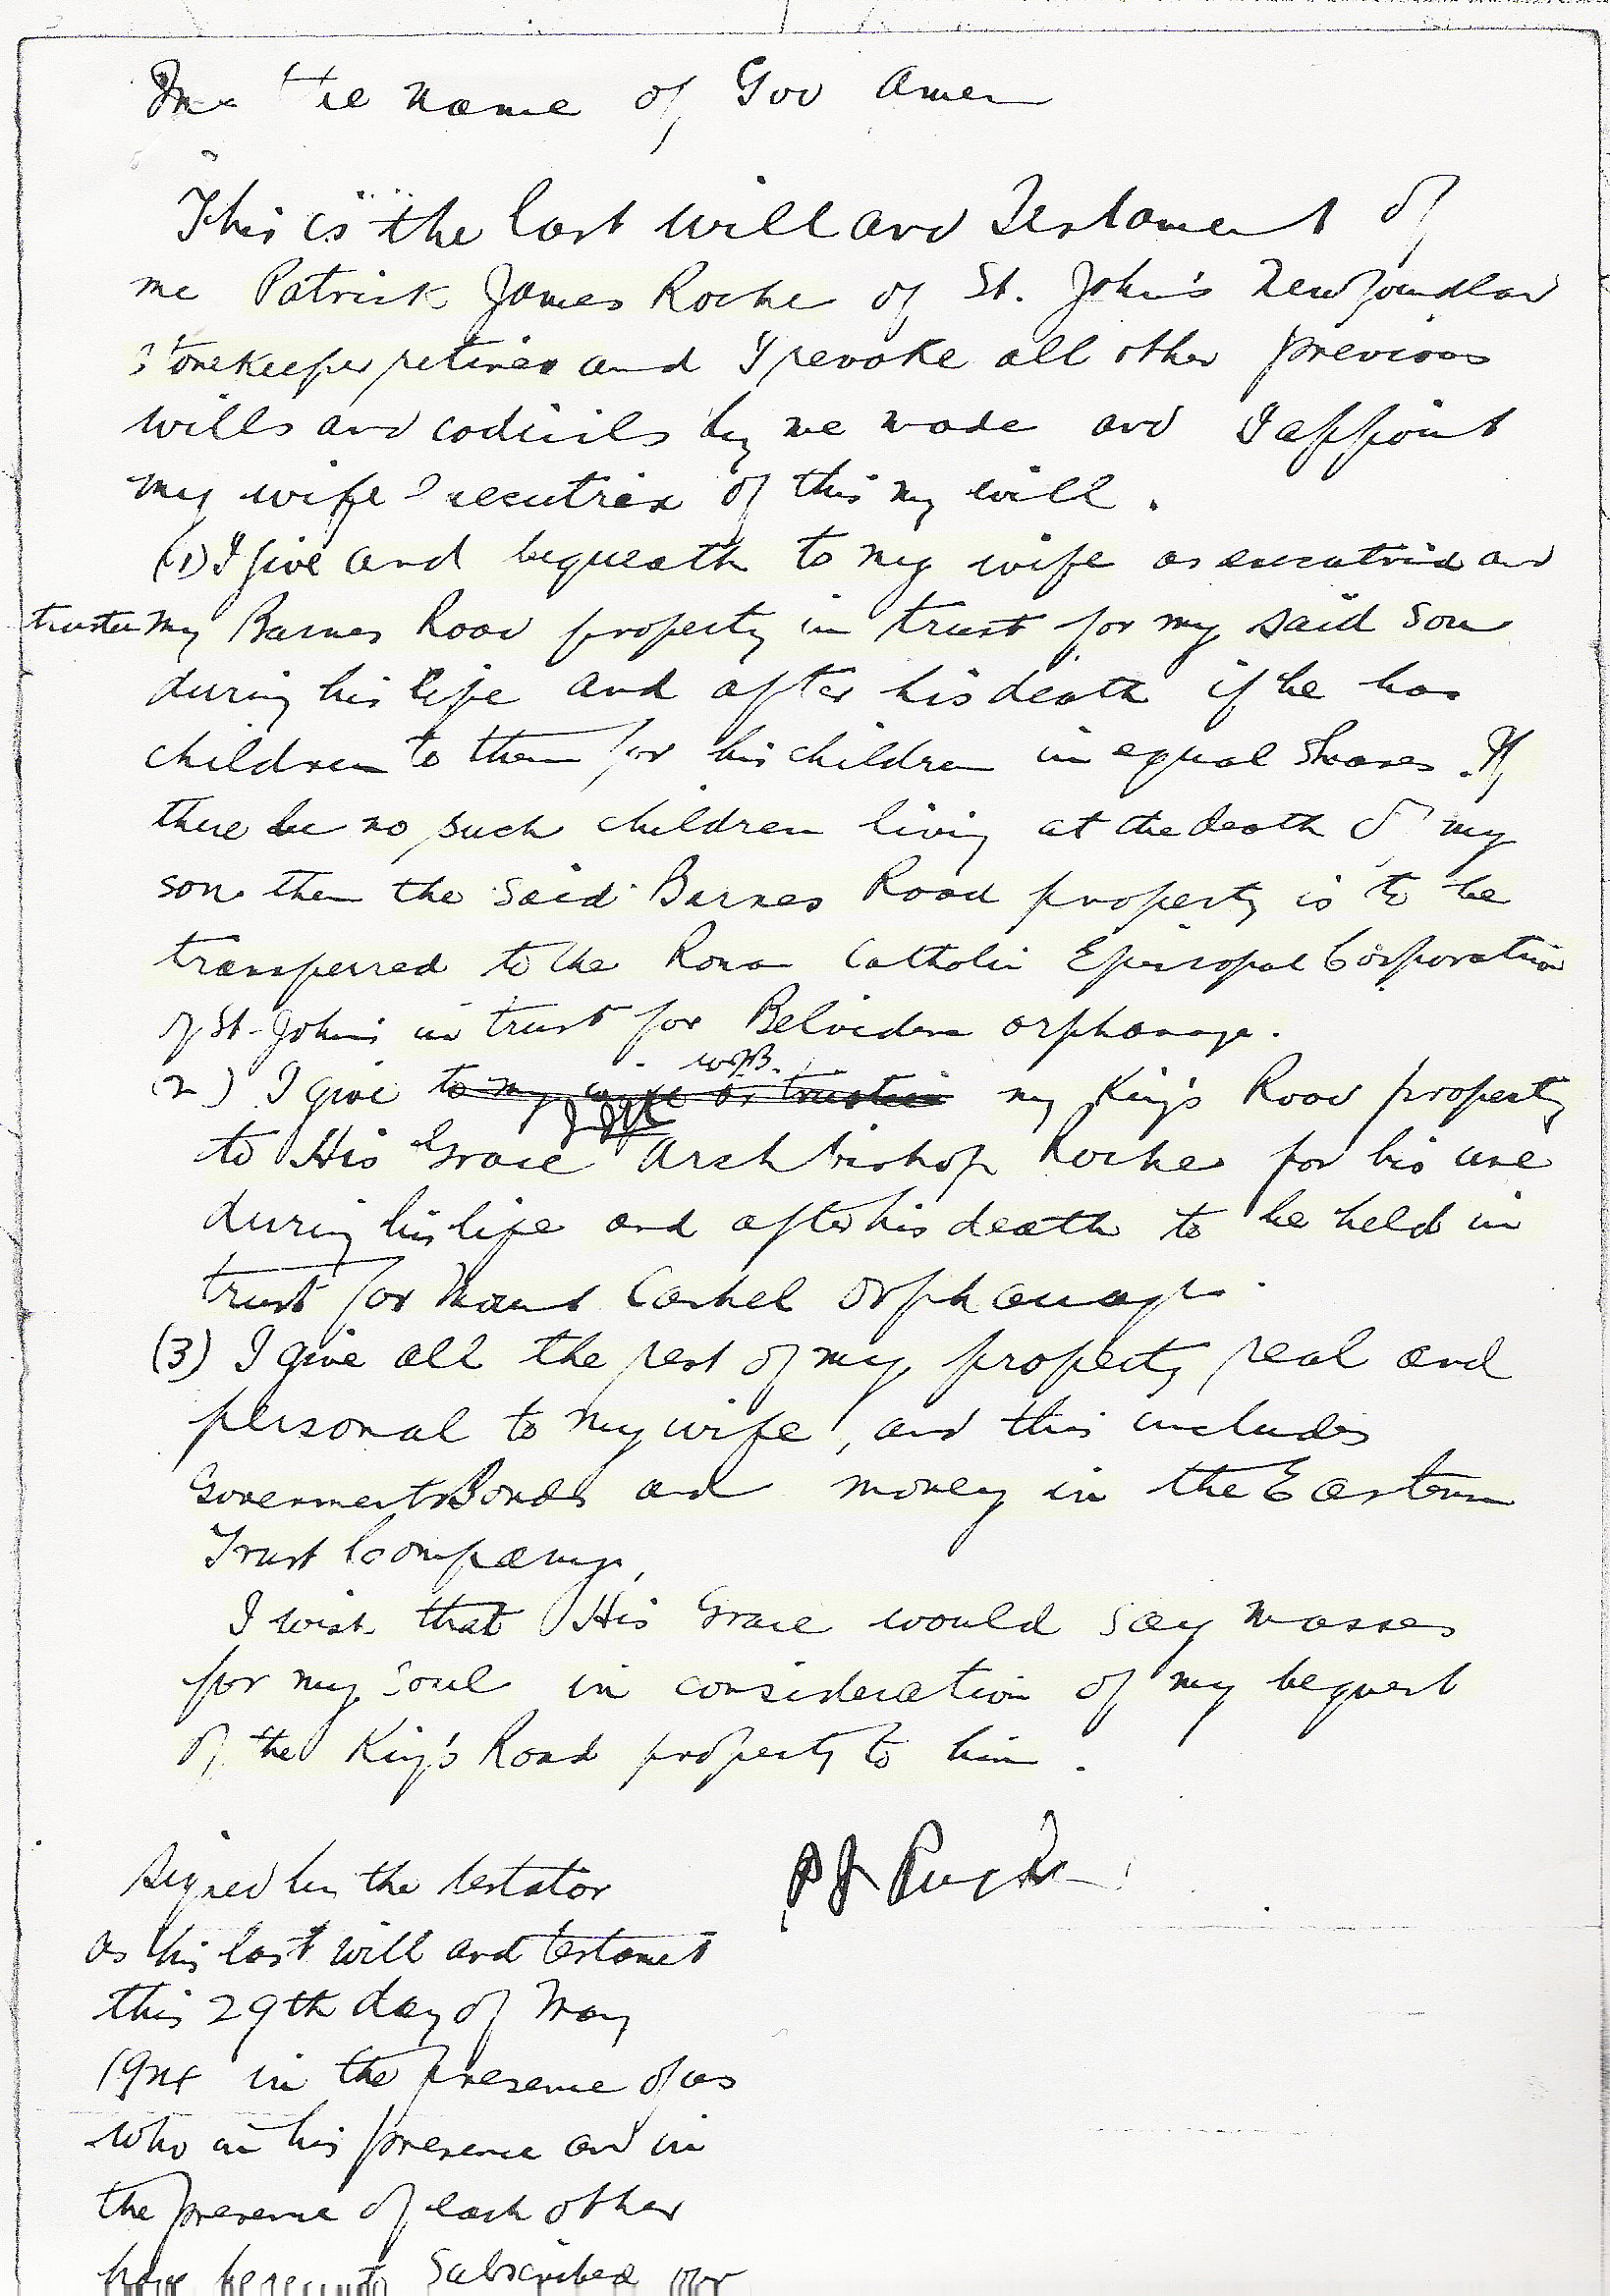 In the name of God Amen
This is the last will and Testament of
me Patrick James Roche of St. John's Newfoundland
Storekeeper retired and I revoke all other previous
wills and codicils by me made and I appoint
my wife executrix of this my will.
(1) I give and bequeath to my wife as executrix and
trustee my Barnes Road property in trust for my said son
during his life and after his death if he has
children to them for his children in equal shares. If
there be no such children living at the death of my
son then the said Barnes Road property is to be
transferred to the Roman Catholic Episcopal Corporation
of St. John's in trust for Belvidere orphanage.
W.J.B.
(2) I give to my wife as trustee my King's Road property
to His Grace Archbishop Roche for his use
during his life and after his death to be held in
trust for Mount Cashel Orphanage.
(3) I give all the rest of my property real and
personal to my wife, and this includes
Government Bonds and money in the Eastern
Trust Company,
I wish that His Grace would say masses
for my soul in consideration of my bequest
of the King's Road property to him.
P J
Signed by the testator
as his last will and testament
this 29th day of May
in the presence of us
who in his presence and in
the presence of each other
have hereunto subscribed our